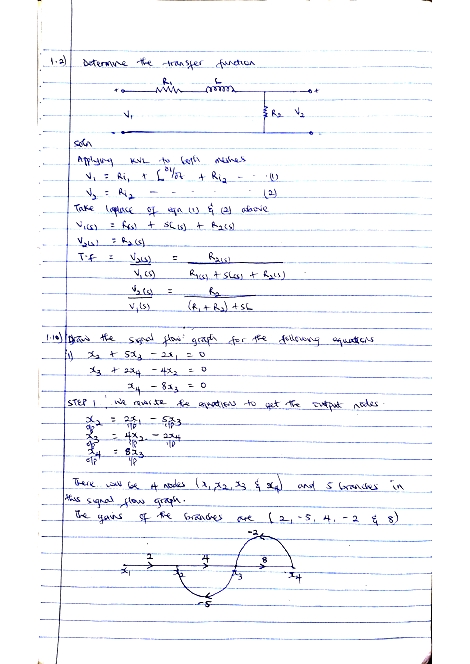 1.2) Determine the transfer function
R₁ L
V₁ R₂ V₂
soln
Applying KVL to both meshes
V₁ = Ri₁ + L di/dt + Ri₂ - - - (1)
V₂ = Ri₂ - - - - (2)
Take laplace of eqn (1) & (2) above
V₁(s) = R(s) + SL(s) + R₂(s)
V₂(s) = R₂(s)
T.F = V₂(s) = R₂(s)
V₁(s) R₁(s) + SL(s) + R₂(s)
V₂(s) = R₂
V₁(s) (R₁ + R₂) + SL
1.10) Draw the signal flow graph for the following equations
i) x₂ + 5x₃ - 2x₁ = 0
x₃ + 2x₄ - 4x₂ = 0
x₄ - 8x₃ = 0
STEP 1, we rewrite the equations to get the output nodes.
x₂ = 2x₁ - 5x₃
o/p i/p i/p
x₃ = 4x₂ - 2x₄
o/p i/p i/p
x₄ = 8x₃
o/p i/p
There will be 4 nodes (x₁, x₂, x₃ & x₄) and 5 branches in
this signal flow graph.
The gains of the branches are (2, -5, 4, -2 & 8)
-2
2 4 8
x₁ x₂ x₃ x₄
-5